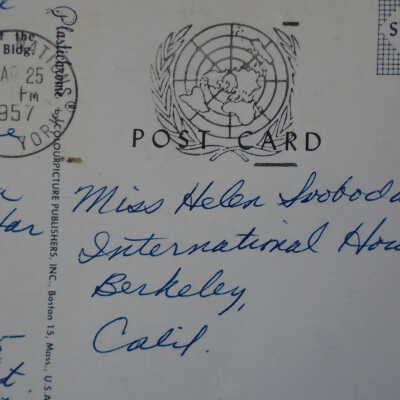 of the
Bldg.
NATIONS
MAR 25
PM
1957
YORK
Plastichrome ®
by COLOURPICTURE PUBLISHERS, INC., Boston 15, Mass., U.S.A.
POST CARD
S
Miss Helen Svoboda
International Hou
Berkeley,
Calif.